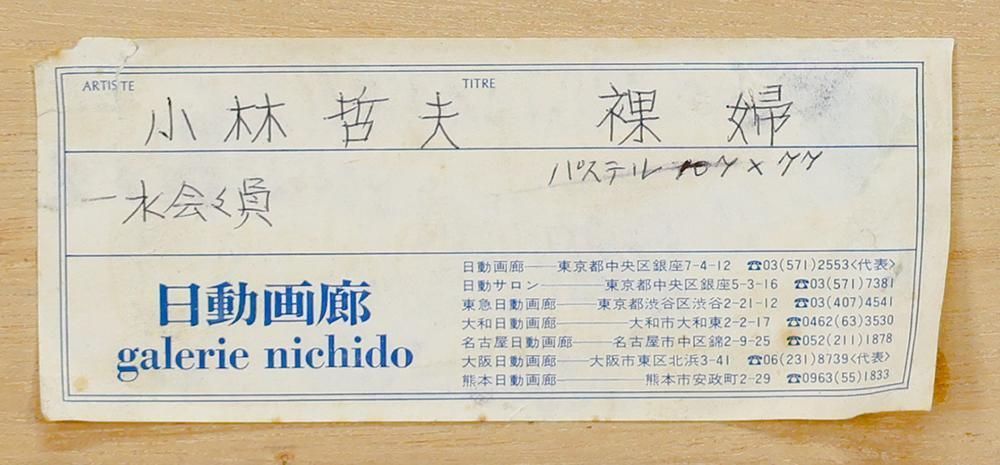 ARTISTE
小林哲夫
TITRE
裸婦
一水会々員
パステル 107×77
日動画廊
galerie nichido
日動画廊——東京都中央区銀座7-4-12 ☎03(571)2553<代表>
日動サロン——東京都中央区銀座5-3-16 ☎03(571)7381
東急日動画廊——東京都渋谷区渋谷2-21-12 ☎03(407)4541
大和日動画廊——大和市大和東2-2-17 ☎0462(63)3530
名古屋日動画廊——名古屋市中区錦2-9-25 ☎052(211)1878
大阪日動画廊——大阪市東区北浜3-41 ☎06(231)8739<代表>
熊本日動画廊——熊本市安政町2-29 ☎0963(55)1833